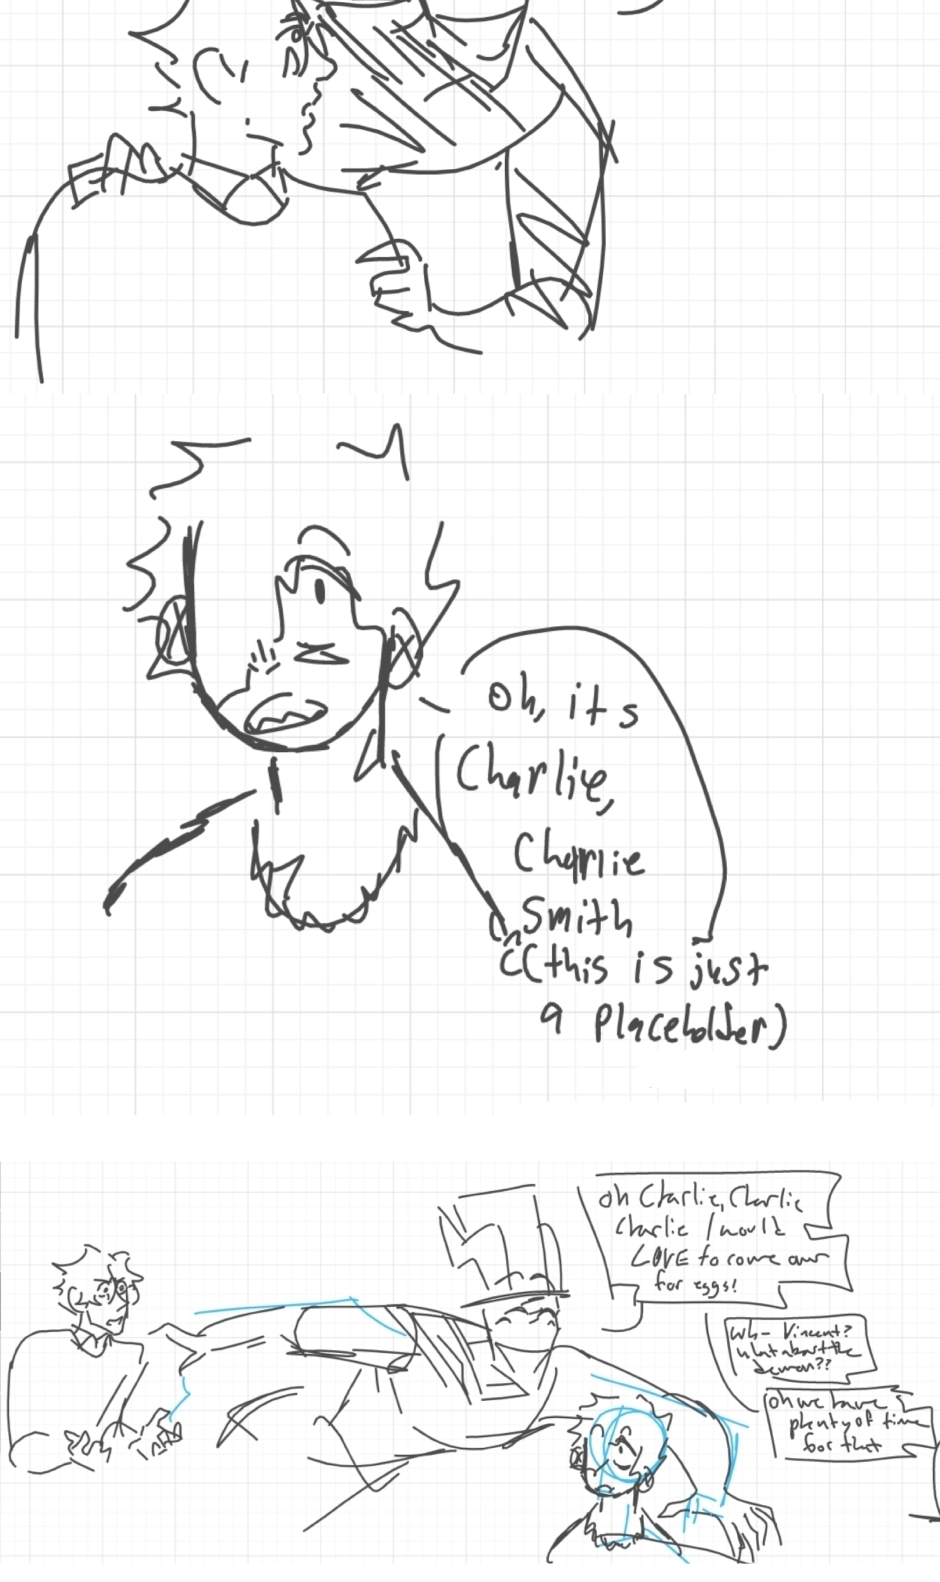 Oh, it s
Charlie,
Charlie
Smith
((this is just
a placeholder)
oh Charlie, Charlie
Charlie I would
LOVE to come over
for eggs!
Wh- Vincent?
what about the
demon??
oh we have
plenty of time
for that